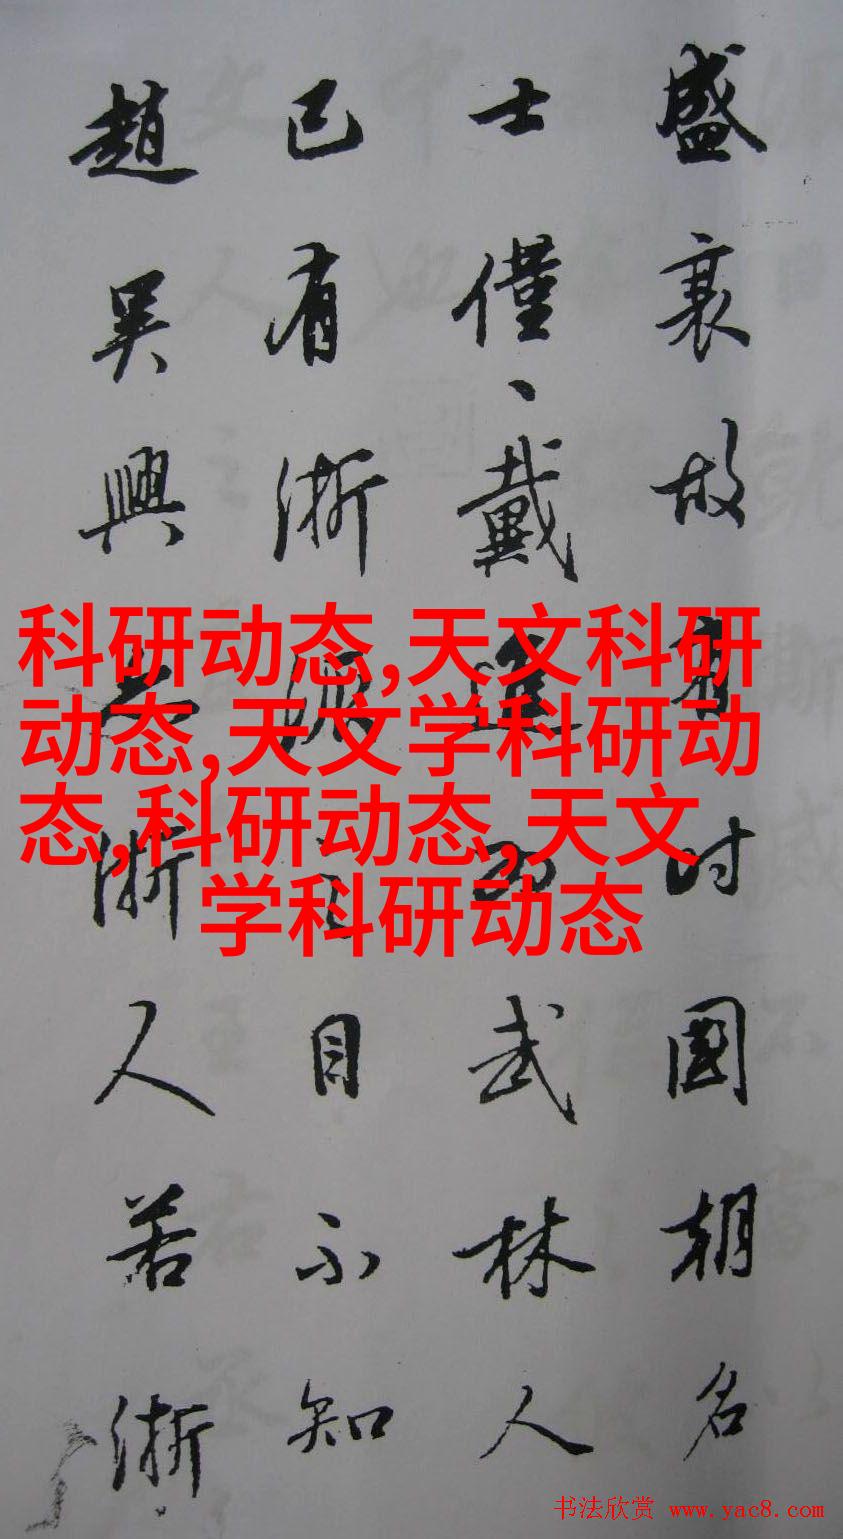 盛衰故有时國朝名
士僅、戴進武林人
已有浙目不知
趙吳興浙人若浙
科研动态,天文科研
动态,天文学科研动
态,科研动态,天文
学科研动态
书法欣赏 www.yac8.com